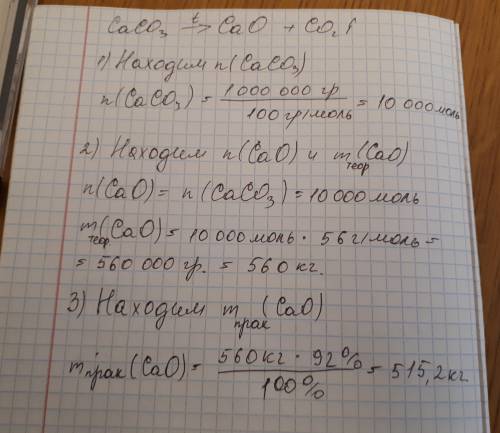 CaCO₃ →ᵗ CaO + CO₂↑
1) Находим n(CaCO₃)
n(CaCO₃) = 1 000 000 гр / 100 гр/моль = 10 000 моль
2) Находим n(CaO) и m теор (CaO)
n(CaO) = n(CaCO₃) = 10 000 моль
m теор (CaO) = 10 000 моль · 56 г/моль =
= 560 000 гр. = 560 кг.
3) Находим m прак (CaO)
m прак (CaO) = 560 кг · 92% / 100% = 515,2 кг